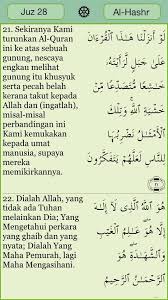 Juz 28
Al-Hashr
21. Sekiranya Kami
turunkan Al-Quran
ini ke atas sebuah
gunung, nescaya
engkau melihat
gunung itu khusyuk
serta pecah belah
kerana takut kepada
Allah dan (ingatlah),
misal-misal
perbandingan ini
Kami kemukakan
kepada umat
manusia, supaya
mereka
memikirkannya.
لَوْ أَنزَلْنَا هَـٰذَا الْقُرْءَانَ
عَلَىٰ جَبَلٍ لَّرَأَيْتَهُ
خَـٰشِعًا مُّتَصَدِّعًا مِّنْ
خَشْيَةِ اللَّهِ ۚ وَتِلْكَ
الْأَمْثَـٰلُ نَضْرِبُهَا
لِلنَّاسِ لَعَلَّهُمْ
يَتَفَكَّرُونَ
22. Dialah Allah, yang
tidak ada Tuhan
melainkan Dia; Yang
Mengetahui perkara
yang ghaib dan yang
nyata; Dialah Yang
Maha Pemurah, lagi
Maha Mengasihani.
هُوَ اللَّهُ الَّذِي لَا
إِلَـٰهَ إِلَّا هُوَ ۖ عَـٰلِمُ الْغَيْبِ
وَالشَّهَـٰدَةِ ۖ هُوَ
الرَّحْمَـٰنُ الرَّحِيمُ